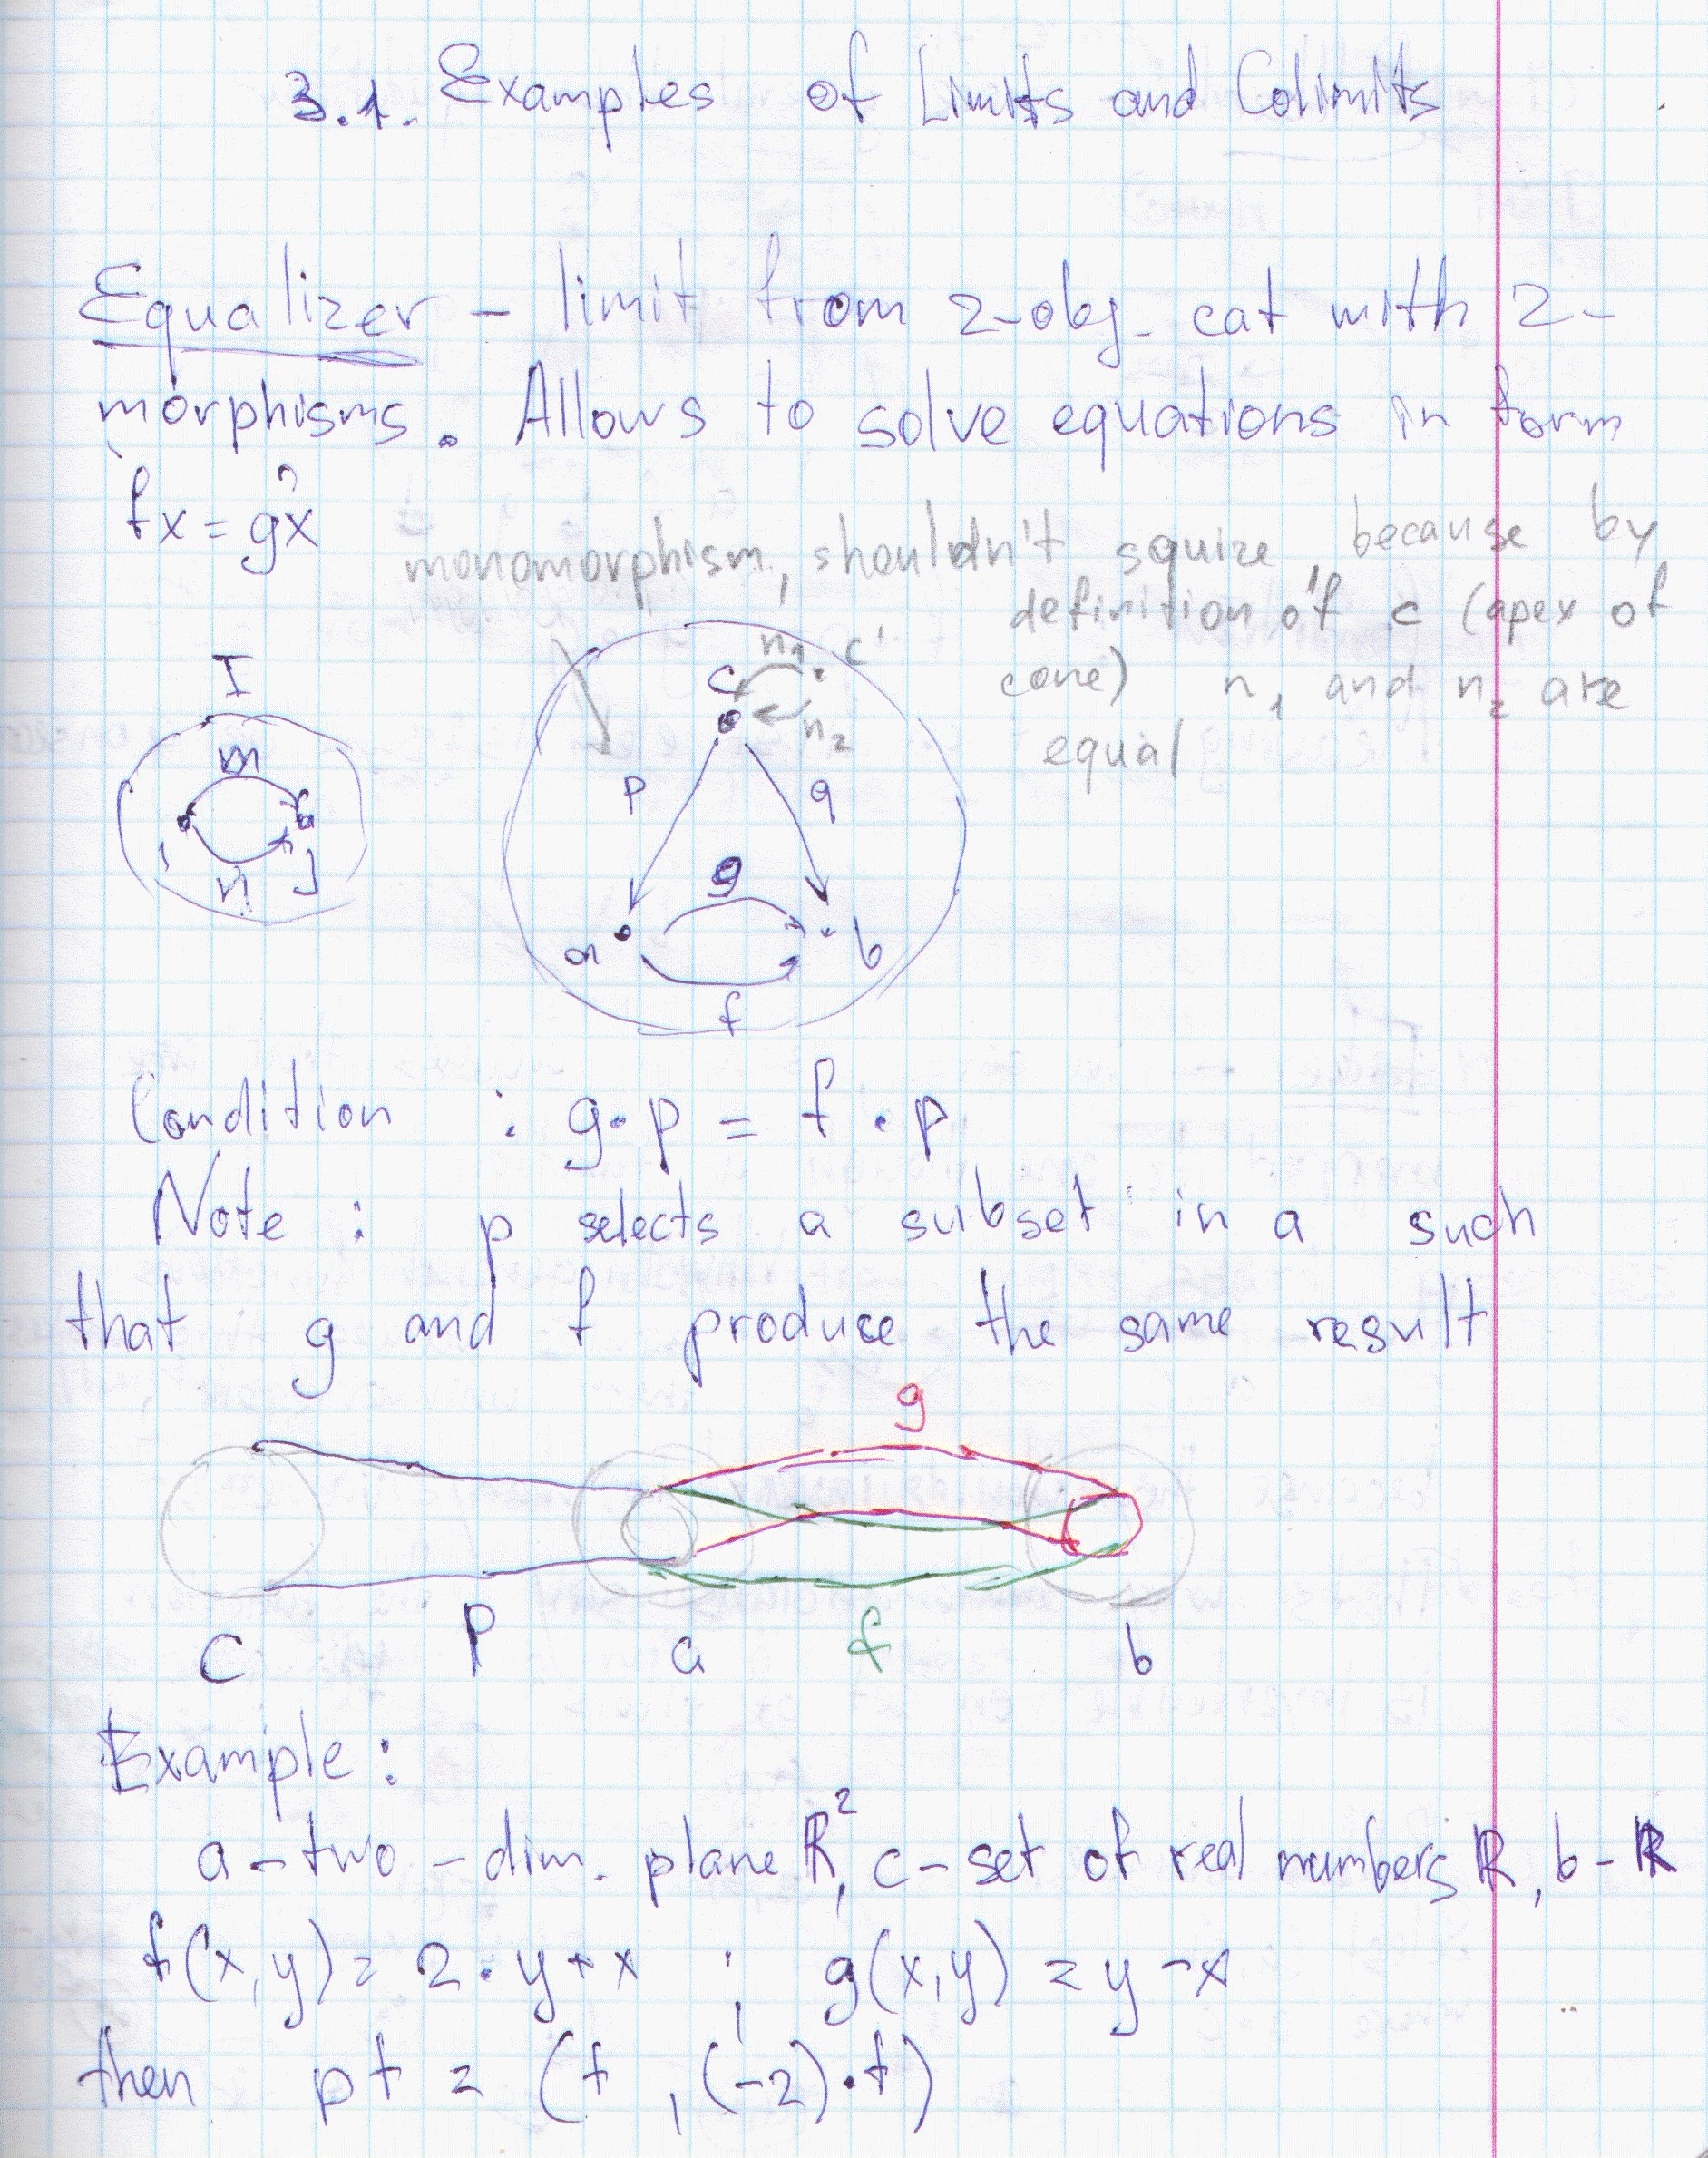 3.1. Examples of Limits and Colimits
Equalizer - limit from 2-obj. cat with 2-
morphisms. Allows to solve equations in form
fx = gx
monomorphism, shouldn't squize, because by
definition of c (apex of
cone) n₁ and n₂ are
equal
I
m
i j
n
n₁ c'
c
n₂
p q
g
a b
f
Condition : g·p = f·p
Note : p selects a subset in a such
that g and f produce the same result
g
c p a f b
Example :
a - two - dim. plane ℝ², c - set of real numbers ℝ, b - ℝ
f(x,y) = 2·y+x ; g(x,y) = y-x
then pt = (t, (-2)·t)